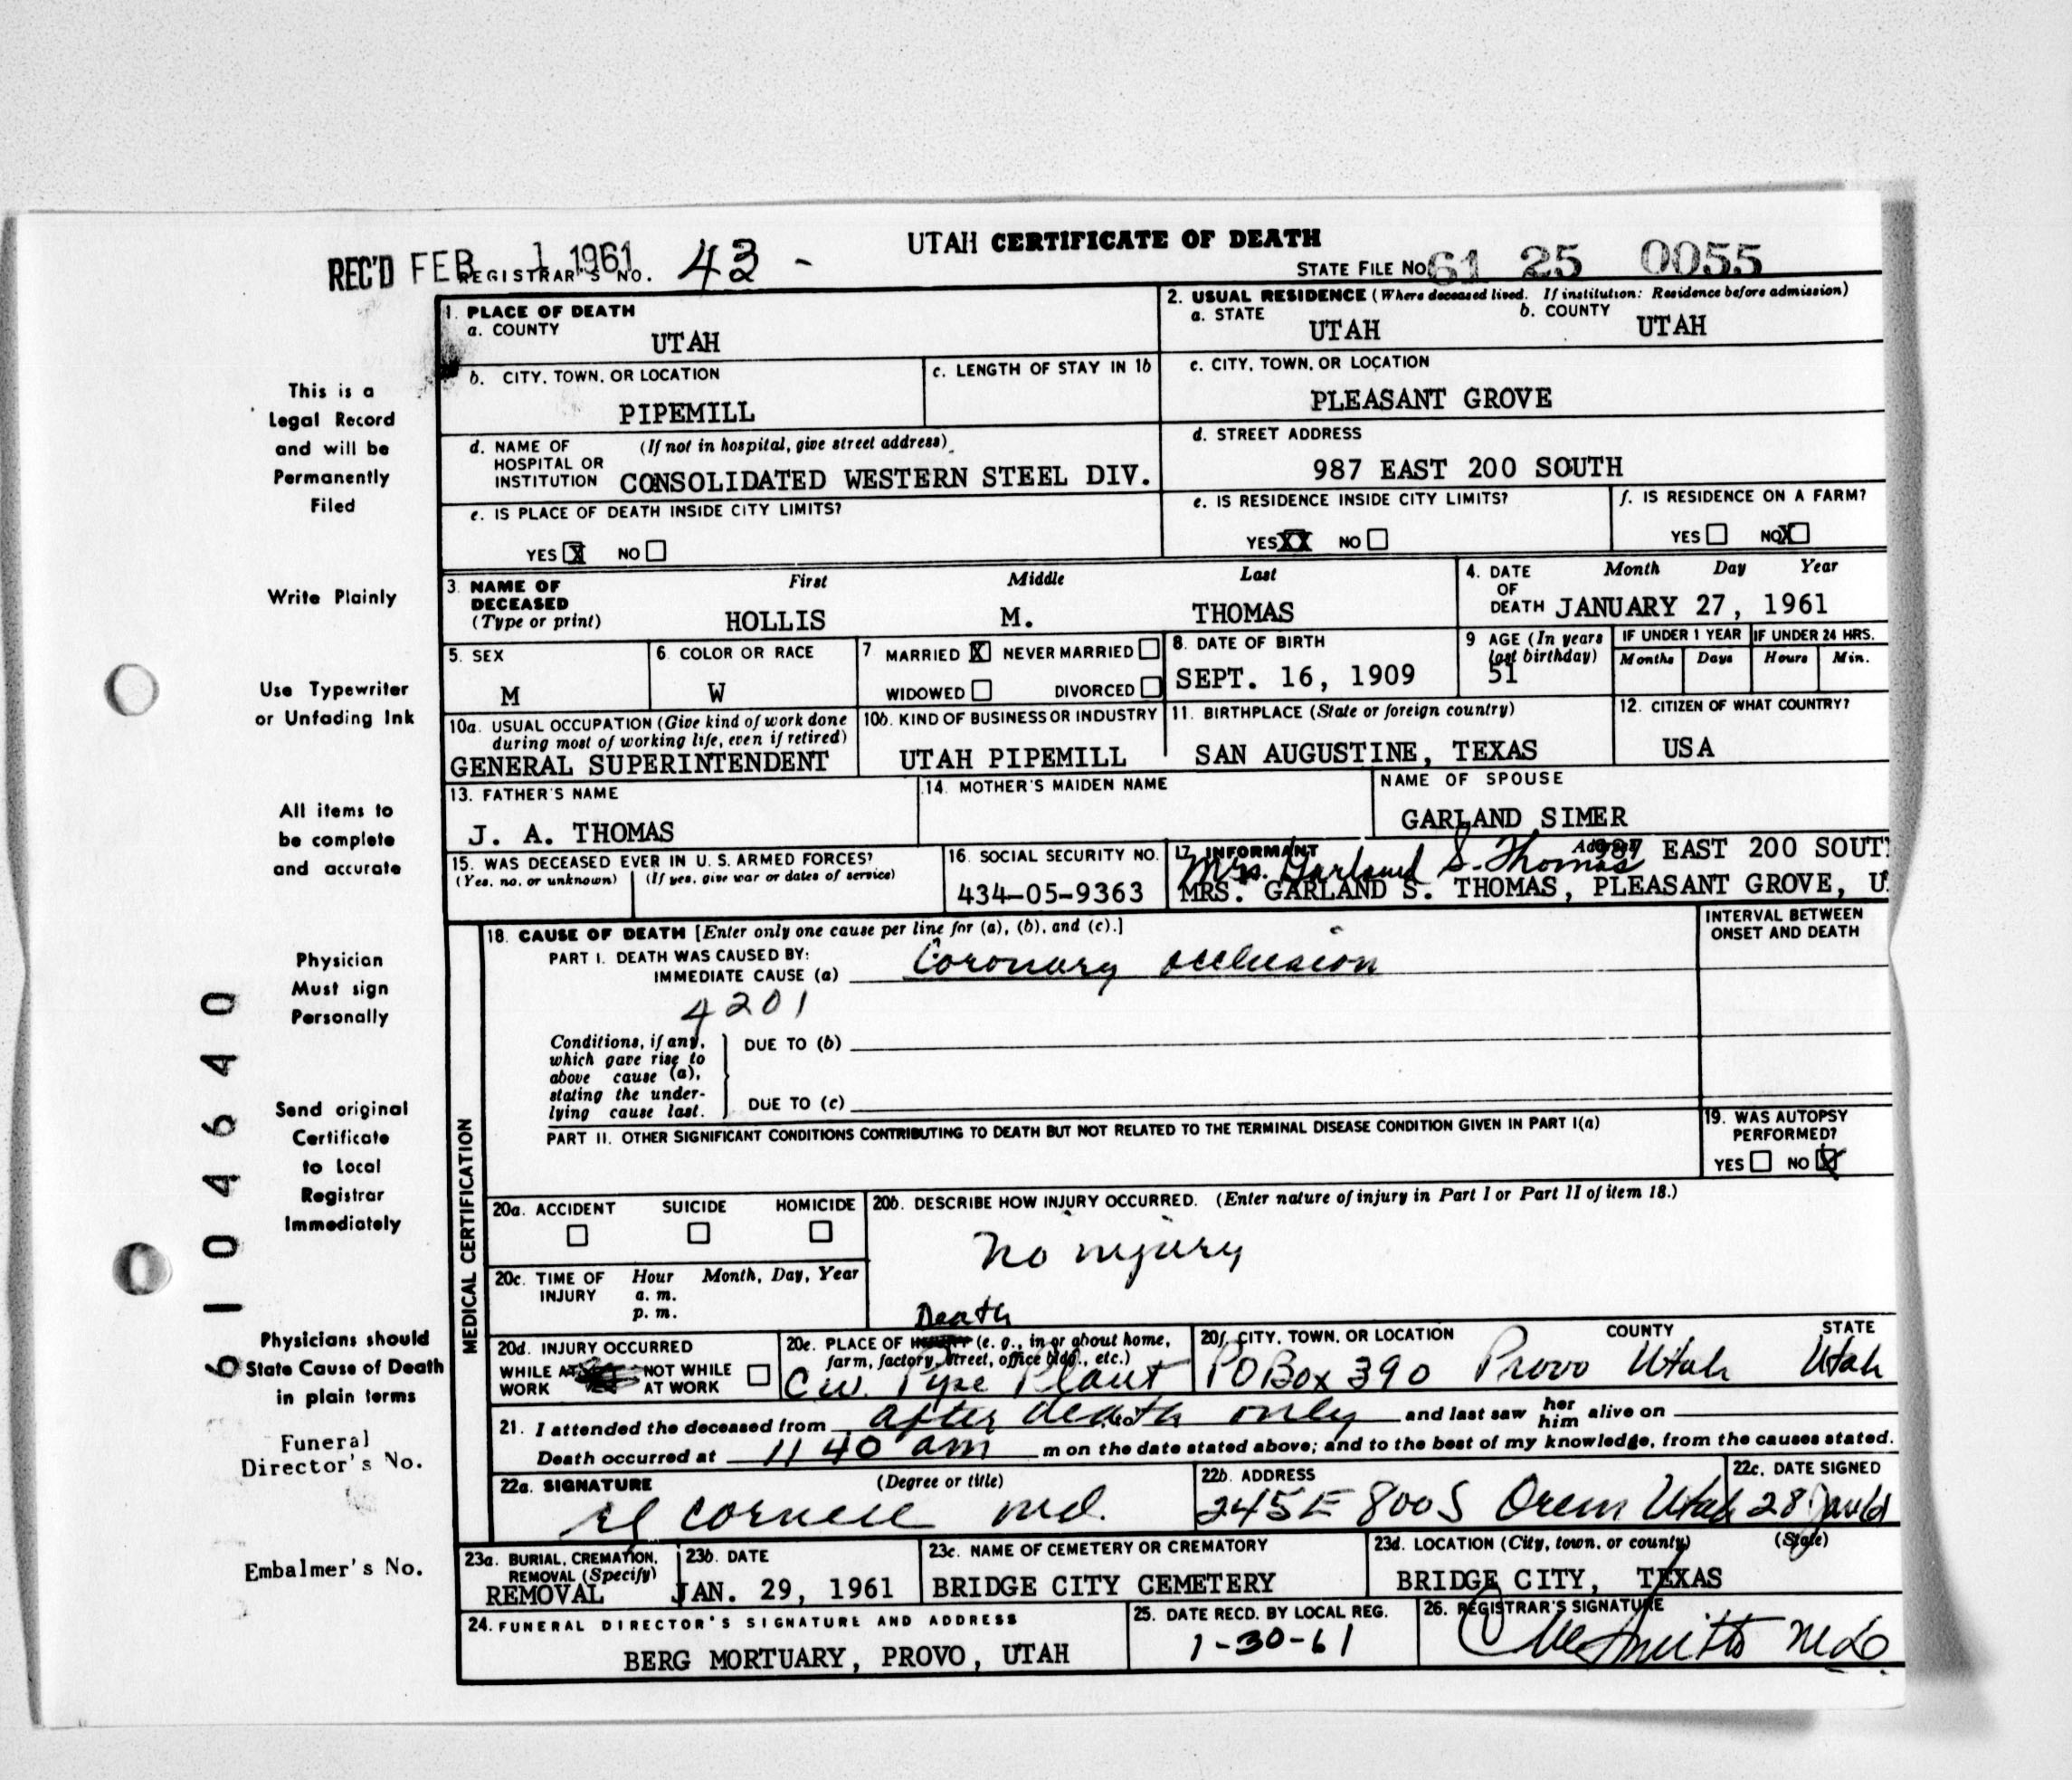 UTAH CERTIFICATE OF DEATH
REC'D FEB 1 1961 REGISTRAR'S NO. 43 -
STATE FILE NO. 61 25 0055
1. PLACE OF DEATH
a. COUNTY
UTAH
2. USUAL RESIDENCE (Where deceased lived. If institution: Residence before admission)
a. STATE
UTAH
b. COUNTY
UTAH
b. CITY, TOWN, OR LOCATION
PIPEMILL
c. LENGTH OF STAY IN 1b
c. CITY, TOWN, OR LOCATION
PLEASANT GROVE
d. NAME OF HOSPITAL OR INSTITUTION (If not in hospital, give street address)
CONSOLIDATED WESTERN STEEL DIV.
d. STREET ADDRESS
987 EAST 200 SOUTH
e. IS PLACE OF DEATH INSIDE CITY LIMITS?
YES X NO
e. IS RESIDENCE INSIDE CITY LIMITS?
YES XX NO
f. IS RESIDENCE ON A FARM?
YES NO X
3. NAME OF DECEASED (Type or print)
First Middle Last
HOLLIS M. THOMAS
4. DATE OF DEATH
Month Day Year
JANUARY 27, 1961
5. SEX
M
6. COLOR OR RACE
W
7 MARRIED X NEVER MARRIED
WIDOWED DIVORCED
8. DATE OF BIRTH
SEPT. 16, 1909
9 AGE (In years last birthday)
51
IF UNDER 1 YEAR
Months Days
IF UNDER 24 HRS.
Hours Min.
10a. USUAL OCCUPATION (Give kind of work done during most of working life, even if retired)
GENERAL SUPERINTENDENT
10b. KIND OF BUSINESS OR INDUSTRY
UTAH PIPEMILL
11. BIRTHPLACE (State or foreign country)
SAN AUGUSTINE, TEXAS
12. CITIZEN OF WHAT COUNTRY?
USA
13. FATHER'S NAME
J. A. THOMAS
14. MOTHER'S MAIDEN NAME
NAME OF SPOUSE
GARLAND SIMER
15. WAS DECEASED EVER IN U. S. ARMED FORCES?
(Yes, no, or unknown) (If yes, give war or dates of service)
16. SOCIAL SECURITY NO.
434-05-9363
17. INFORMANT Address 987 EAST 200 SOUT
Mrs. Garland S. Thomas
MRS. GARLAND S. THOMAS, PLEASANT GROVE, U.
MEDICAL CERTIFICATION
18. CAUSE OF DEATH [Enter only one cause per line for (a), (b), and (c).]
INTERVAL BETWEEN ONSET AND DEATH
PART I. DEATH WAS CAUSED BY:
IMMEDIATE CAUSE (a) Coronary occlusion
4201
Conditions, if any, which gave rise to above cause (a), stating the underlying cause last.
DUE TO (b)
DUE TO (c)
PART II. OTHER SIGNIFICANT CONDITIONS CONTRIBUTING TO DEATH BUT NOT RELATED TO THE TERMINAL DISEASE CONDITION GIVEN IN PART I(a)
19. WAS AUTOPSY PERFORMED?
YES NO X
20a. ACCIDENT SUICIDE HOMICIDE
20b. DESCRIBE HOW INJURY OCCURRED. (Enter nature of injury in Part I or Part II of item 18.)
No injury
20c. TIME OF INJURY Hour Month, Day, Year
a. m.
p. m.
20d. INJURY OCCURRED
WHILE AT WORK NOT WHILE AT WORK
Death
20e. PLACE OF (e. g., in or about home, farm, factory, street, office bldg., etc.)
C W. Pipe Plant
20f. CITY, TOWN, OR LOCATION COUNTY STATE
PO Box 390 Provo Utah Utah
21. I attended the deceased from after death only and last saw her him alive on
Death occurred at 11 40 am m on the date stated above; and to the best of my knowledge, from the causes stated.
22a. SIGNATURE (Degree or title)
Cornell Md.
22b. ADDRESS
245 E 800 S Orem Utah
22c. DATE SIGNED
28 Jan 61
23a. BURIAL, CREMATION, REMOVAL (Specify)
REMOVAL
23b. DATE
JAN. 29, 1961
23c. NAME OF CEMETERY OR CREMATORY
BRIDGE CITY CEMETERY
23d. LOCATION (City, town, or county) (State)
BRIDGE CITY, TEXAS
24. FUNERAL DIRECTOR'S SIGNATURE AND ADDRESS
BERG MORTUARY, PROVO, UTAH
25. DATE RECD. BY LOCAL REG.
1-30-61
26. REGISTRAR'S SIGNATURE
Smith MD
This is a
Legal Record
and will be
Permanently
Filed
Write Plainly
Use Typewriter
or Unfading Ink
All items to
be complete
and accurate
Physician
Must sign
Personally
Send original
Certificate
to Local
Registrar
Immediately
Physicians should
State Cause of Death
in plain terms
Funeral
Director's No.
Embalmer's No.
6104640